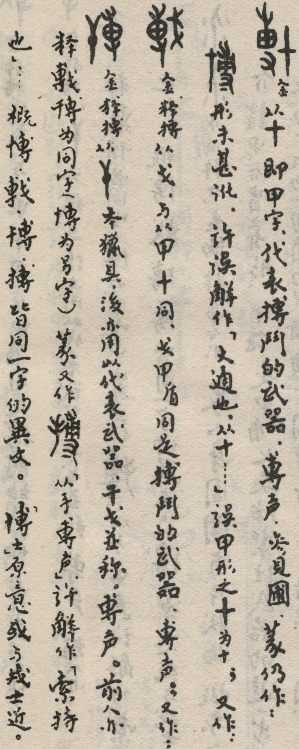 金从十即甲字,代表搏鬥的武器,尃声,參見圃,篆仍作:
形未甚訛。許误解作「大通也,从十……」误甲形之十为十;又作:
金释搏从戈,与从甲十同,戈甲盾同是搏鬥的武器,尃声。又作:
金释搏从 本獵具,後亦用以代表武器,干戈並称。尃声。前人亦
释 博为同字(博为另字)篆又作 「从手尃声」許解作「索持
也」…概博, 搏皆同一字的異文。「博」士原意或与 士近。